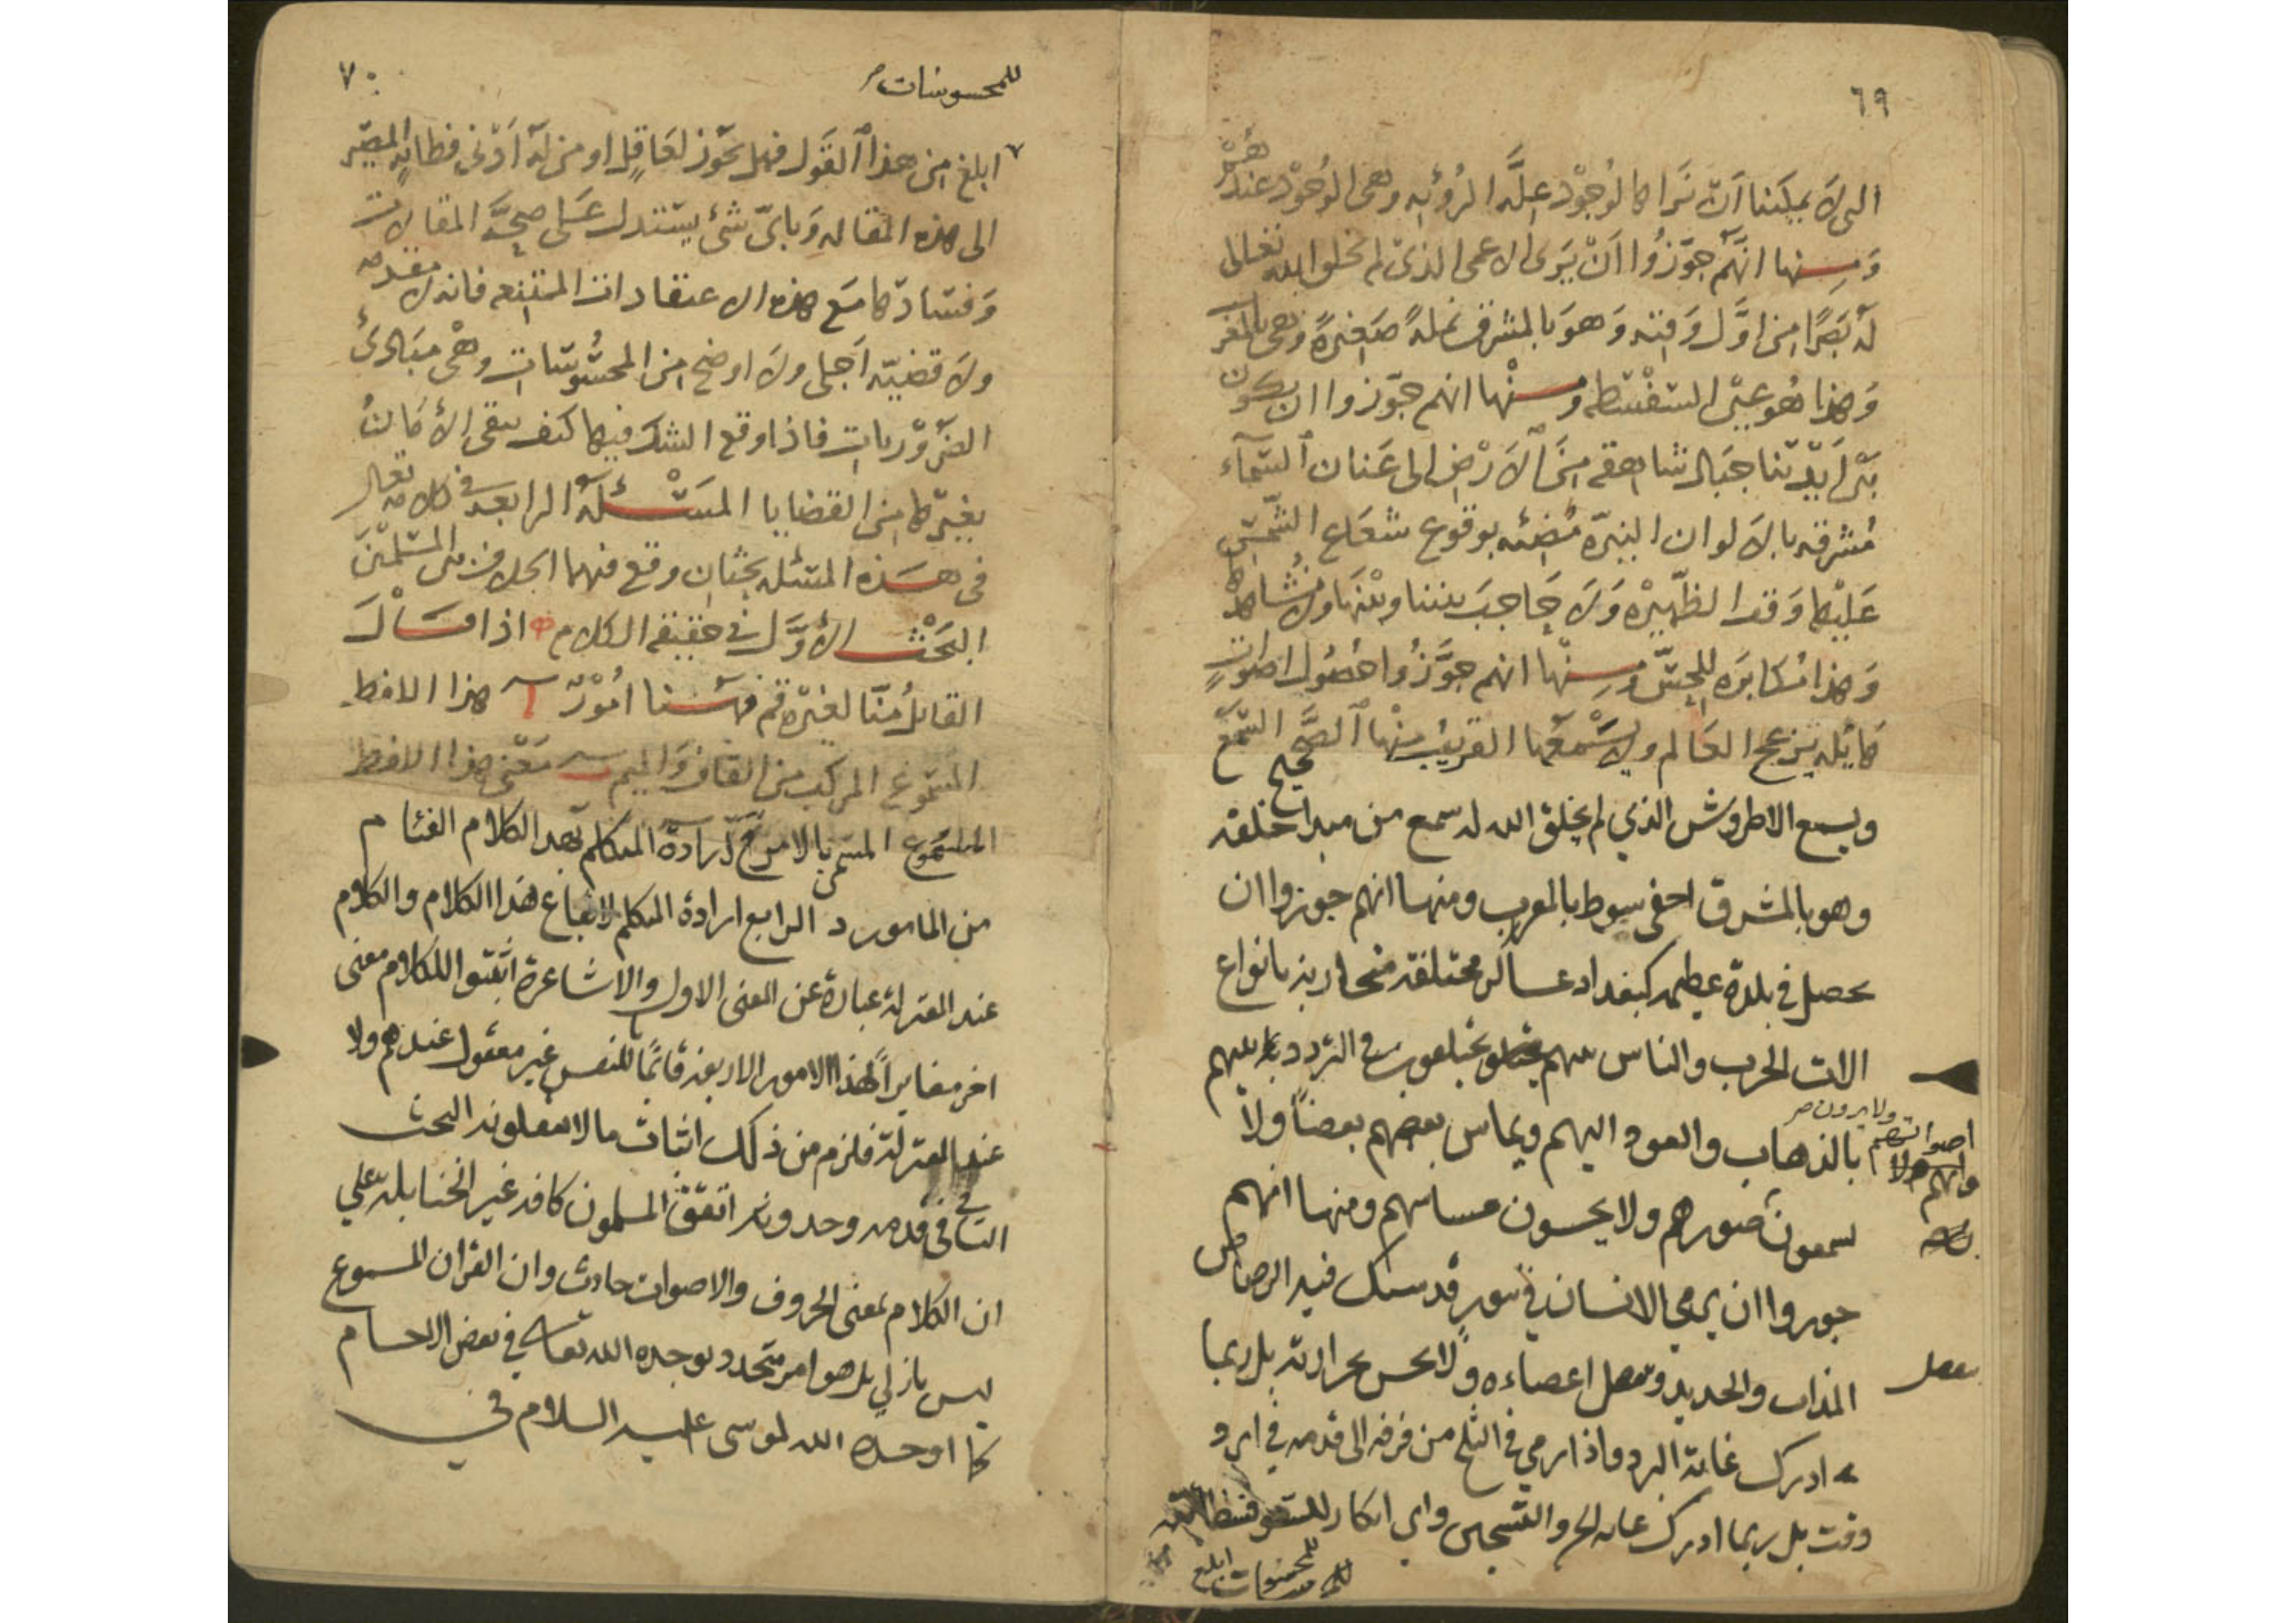 ٦٩
التى لا يمكننا ان نراها كالوجود علة الرؤيه وهى الوجود عندهم
ومنها انهم جوزوا ان يرى الاعمى الذى لم يخلق الله تعالى
له بصرا من اول وقته وهو بالمشرق نملة صغيرة وهى بالمغرب
وهذا هو عين السفسطه ومنها انهم جوزوا ان يكون
بين ايدينا جبال شاهقه من الارض الى عنان السماء
مشرقه بالالوان النيرة مضيئه بوقوع شعاع الشمس
عليها وقت الظهيره ولا حاجب بيننا وبينها ولا نشاهدها
وهذا مكابره للحس ومنها انهم جوزوا حصول اصوات
هائله يزعج العالم ولا يسمعها القريب منها الصحيح السمع
ويسمع الاطروش الذي لم يخلق الله له سمع من مبدا خلقه
وهو بالمشرق اخفى صوط بالمغرب ومنها انهم جوزوا ان
يحصل في بلدة عظيمه كبغداد عساكر مختلفة متحاربة بانواع
الات الحرب والناس بينهم يختلفون في التردد بينهم
ولا يرون صـ
اصواتهم
بالذهاب والعود اليهم ويماس بعضهم بعضاً ولا
يسمعون صورهم ولا يحسون مساسهم ومنها انهم
جوزوا ان يرمى الانسان في تنور قد سبك فيه الرصاص
المذاب والحديد وتفصل اعضاءه ولا يحس بحرارته بل ربما
تفصل
ادرك غاية البرد واذا رمي في الثلج من فرقه الى قدمه في ابرد
وقت بل ربما ادرك غايه الحر والتسخين واي انكار
للمحسوسات ابلغ
٧٠
للمحسوسات صـ
ابلغ من هذا القول فهل يجوز لعاقل او من له ادنى فطانه المصير
الى هذه المقاله وباى شئ يستدل على صحة المقالات
وفسادها مع هذه الاعتقادات الممتنعه فانه لا مقدمه
ولا قضيه اجلى ولا اوضح من المحسوسات وهى مبادئ
الضروريات فاذا وقع الشك فيها كيف يبقى الامان
بغيرها من القضايا المسئلة الرابعه فى كلامه تعالى
فى هذه المسئله بحثان وقع فيهما الخلاف من المسلمين
البحث الاول فى حقيقه الكلام اذا قال
القائل منا لغيره قم فهنا امور ا هذا اللفظ
المسموع المركب من القاف والميم ب معنى هذا اللفظ
المسموع المسمى بالامر ج ارادة المتكلم بهذا الكلام القيام
من المامور د الرابع ارادة المتكلم لايقاع هذا الكلام والكلام
عند المعتزله عبارة عن المعنى الاول والاشاعرة اثبتوا للكلام معنى
اخر مغايراً لهذا الامور الاربعة قائماً للنفس غير معقول عندهم ولا
عند المعتزلة فلزم من ذلك اثبات مالا يعقلونه البحث
الثاني فى قدمه وحدوثه اتفق المسلمون كافه غير الحنابله على
ان الكلام بمعنى الحروف والاصوات حادث وان القران المسموع
ليس بازلي بل هو امر متجدد يوجده الله تعالى في بعض الاجسام
كما اوجده الله لموسى عليه السلام في